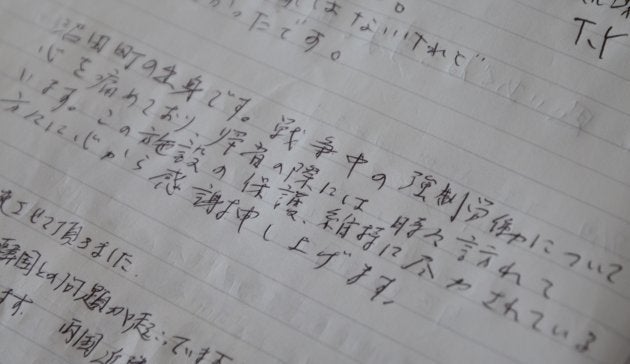 ないけれど
かったです。
T.Y
沼田町の出身です。戦争中の強制労働について
心を痛めており、帰省の際には時々訪れて
います。この施設の保護、維持に尽力されている
方々に心から感謝申し上げます。
させて頂きました。
韓国との問題が起こっています
ます。両国